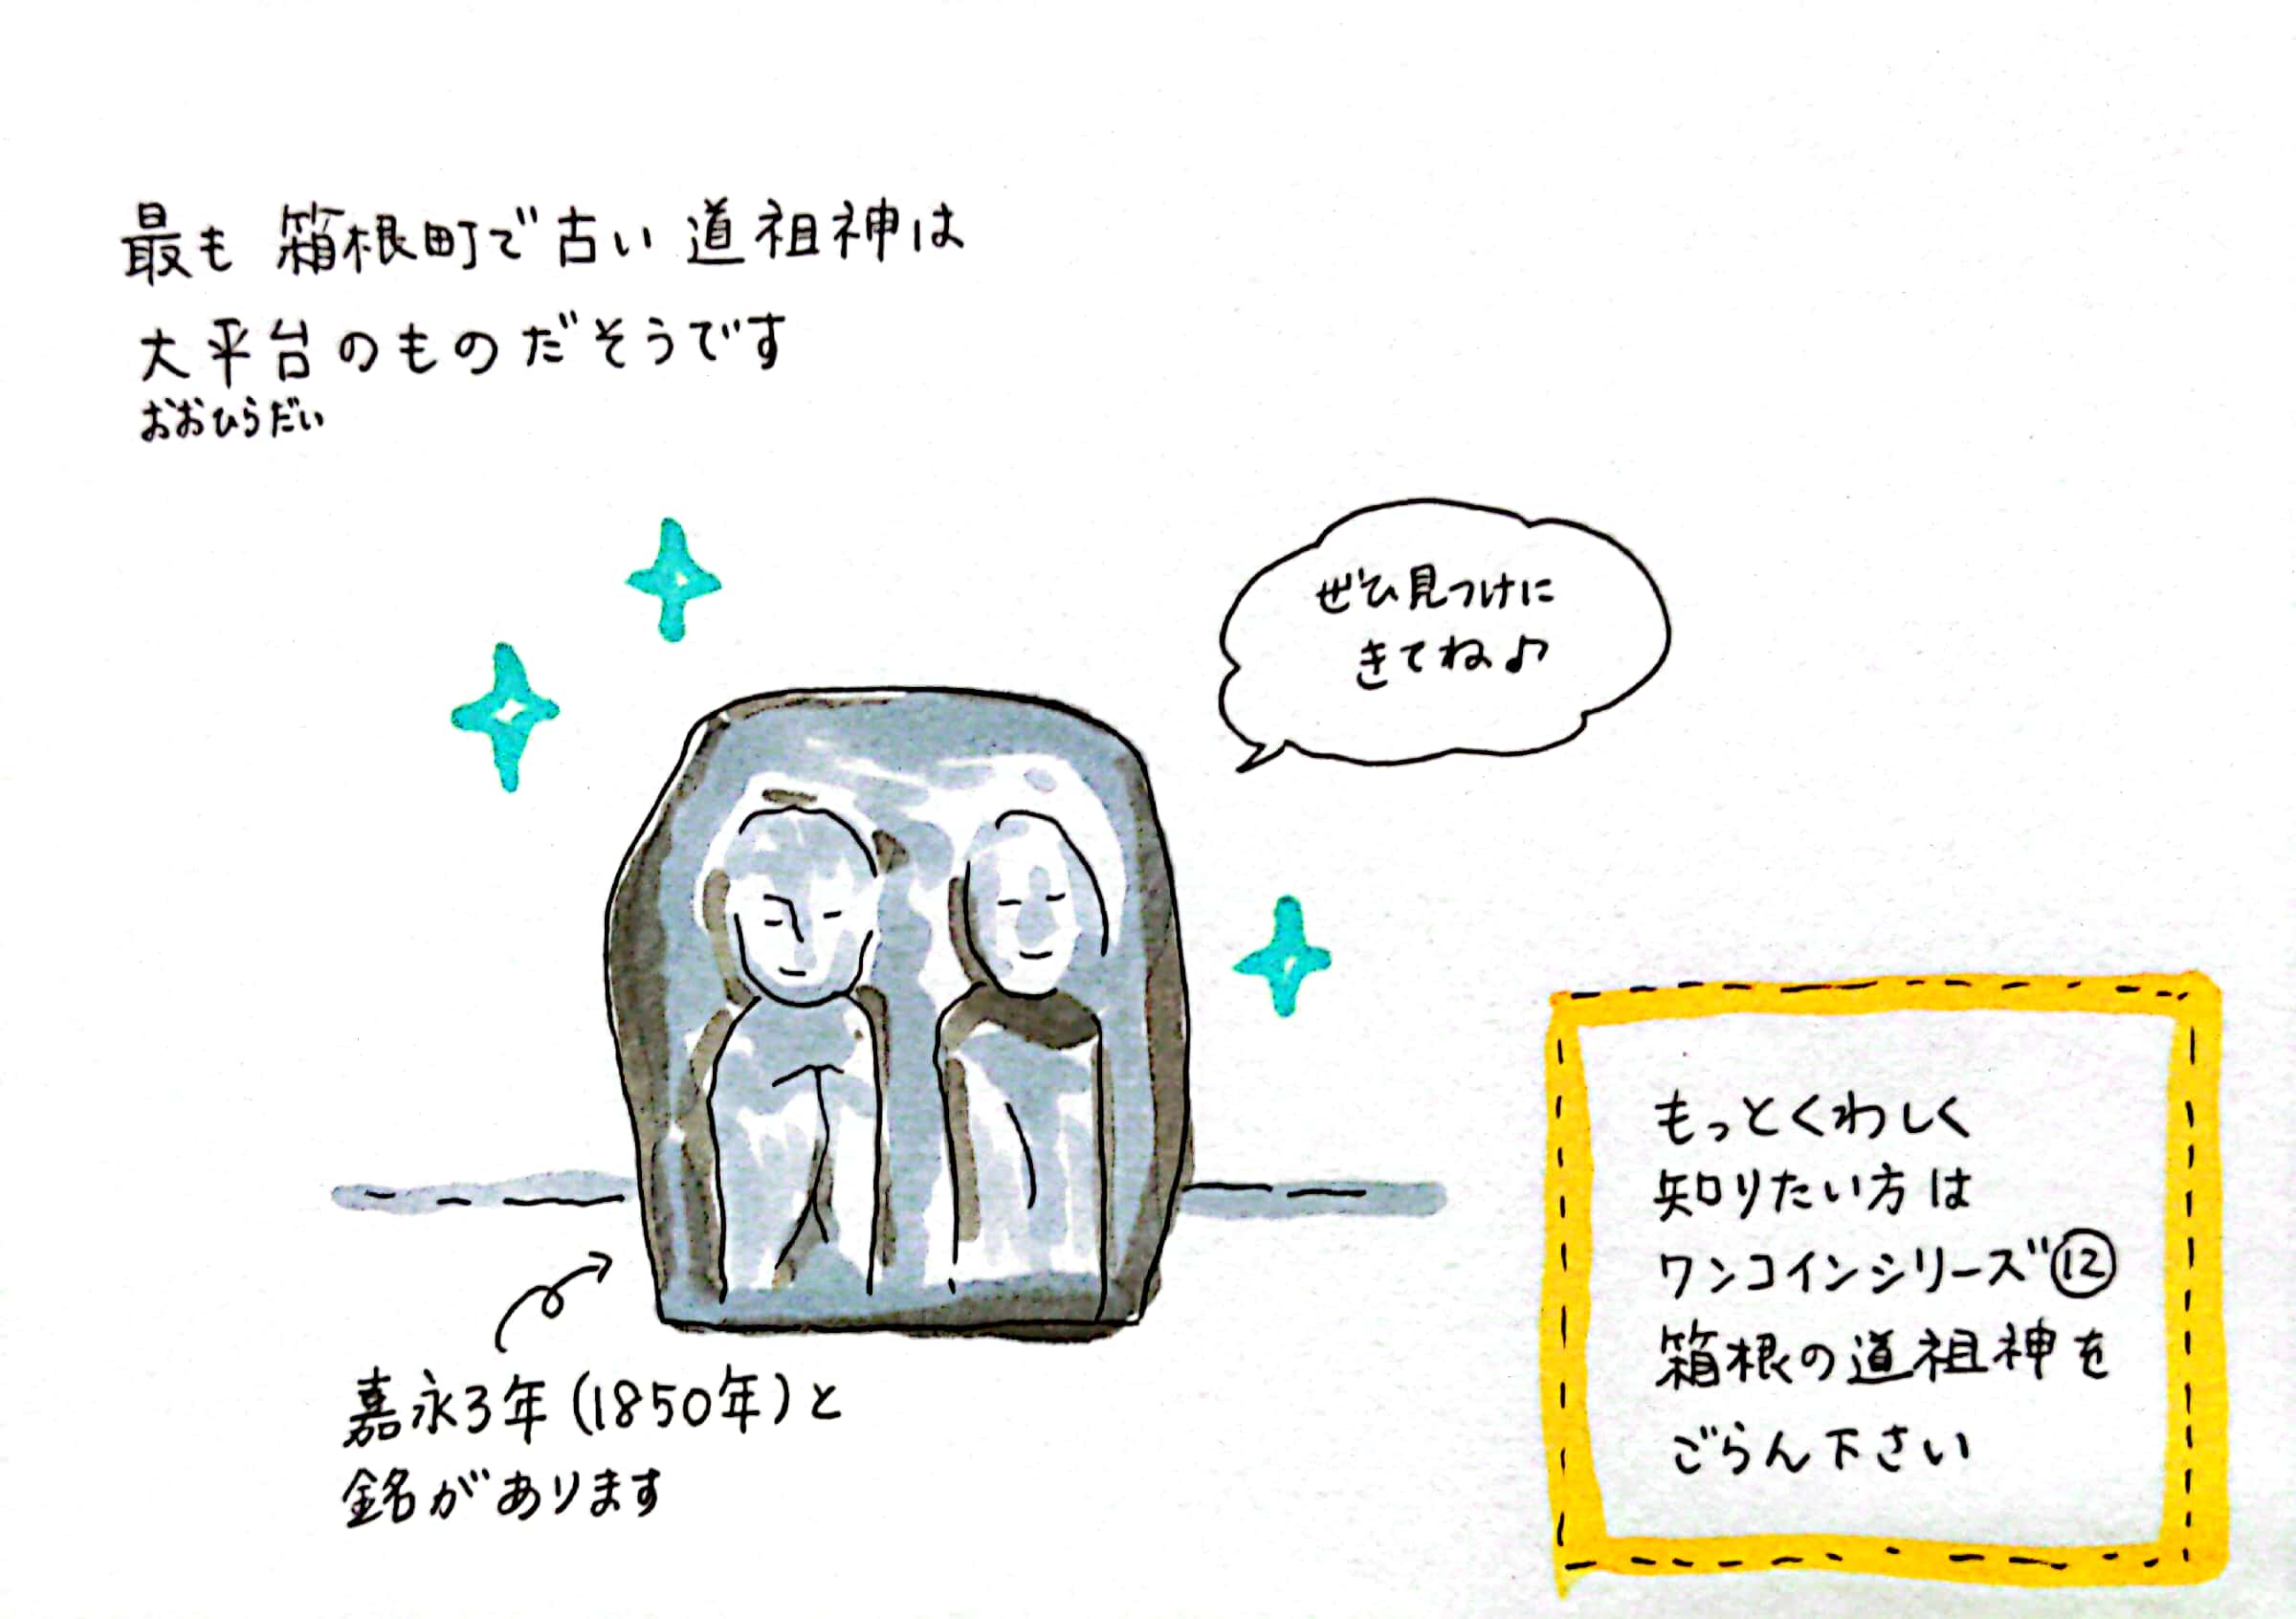 最も 箱根町で古い 道祖神は
大平台のものだそうです
おおひらだい
ぜひ見つけに
きてね♪
嘉永3年(1850年)と
銘があります
もっとくわしく
知りたい方は
ワンコインシリーズ⑫
箱根の道祖神を
ごらん下さい